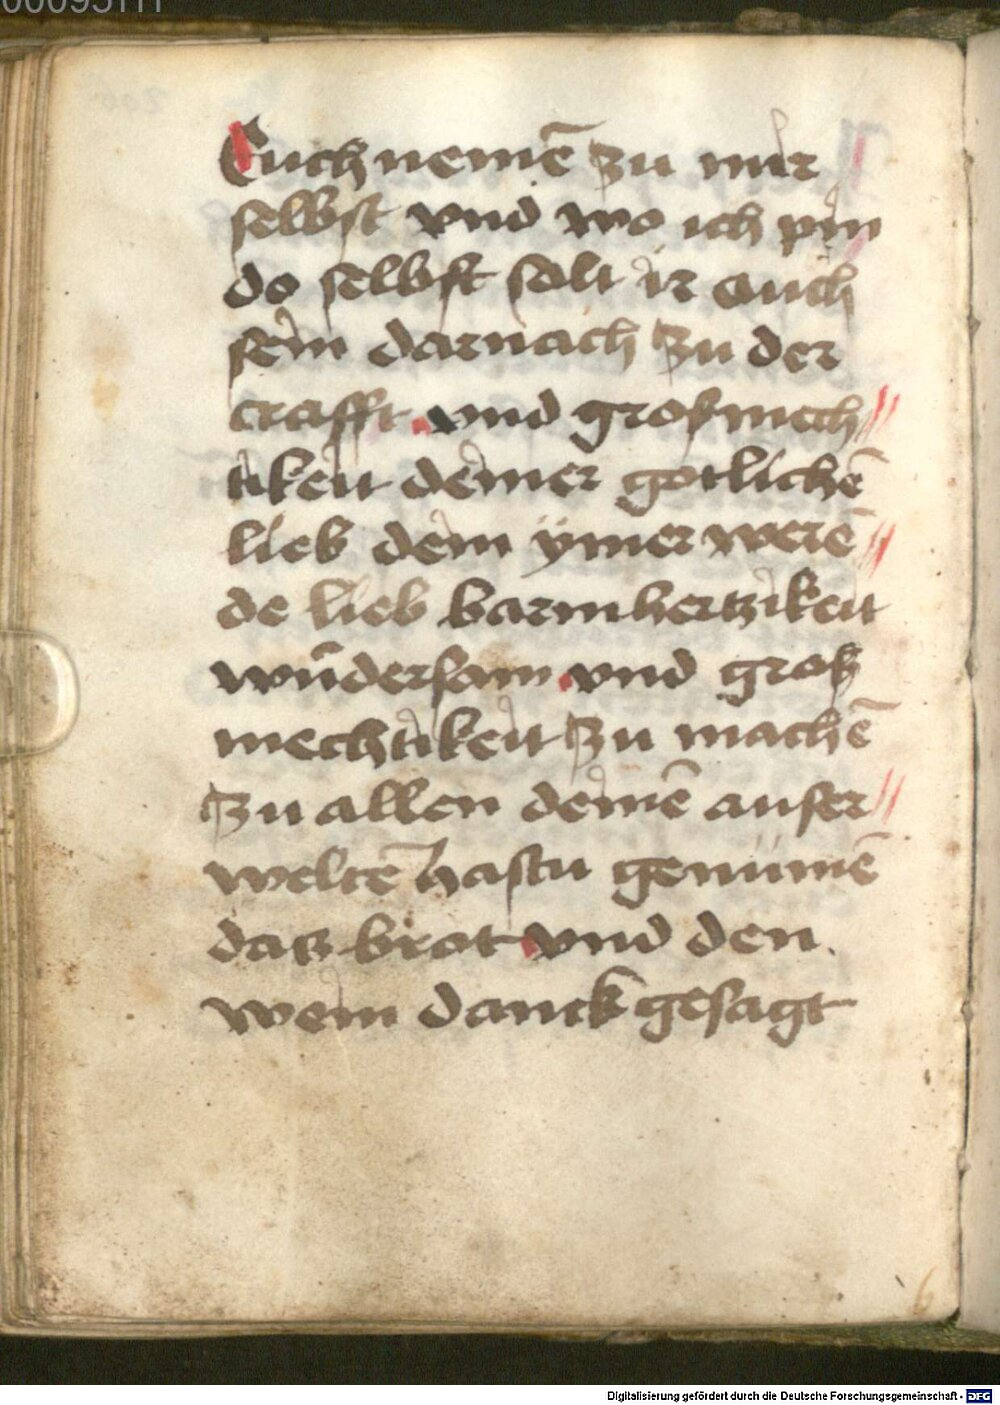 Euch nemē zu mir
selbst vnd wo ich pin
do selbst solt ir auch
sein darnach zu der
crafft vnd groſzmech//
tikeit deiner gotlichē
lieb dein ymer werē//
de lieb barmhertzikeit
wūdersam vnd groſz
mechtikeit zu machē
zu allen deinē auser//
weltē hastu genumē
das brot vnd den
wein danck gesagt
Digitalisierung gefördert durch die Deutsche Forschungsgemeinschaft - DFG